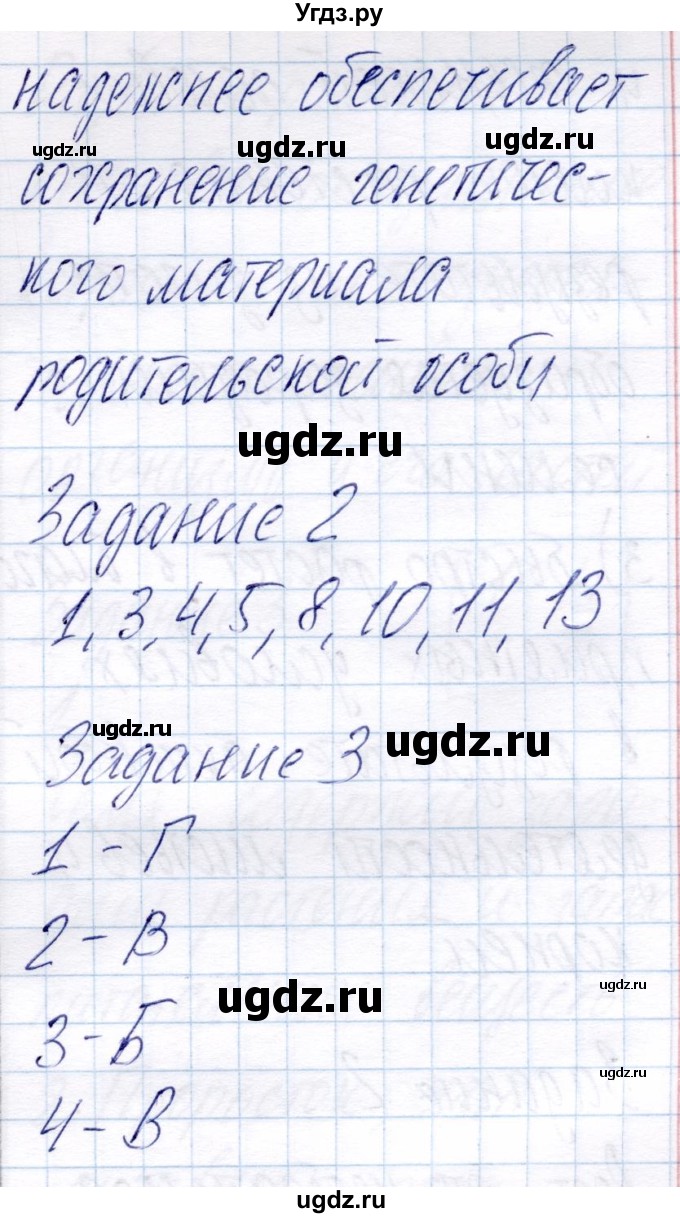 Угдз.ру
надежнее обеспечивает
ugdz.ru ugdz.ru ugdz.ru
сохранение генетичес-
кого материала
родительской особи
ugdz.ru
Задание 2
1, 3, 4, 5, 8, 10, 11, 13
ugdz.ru ugdz.ru
Задание 3
1 - Г
2 - В
ugdz.ru ugdz.ru
3 - Б
ugdz.ru
4 - В
ugdz.ru